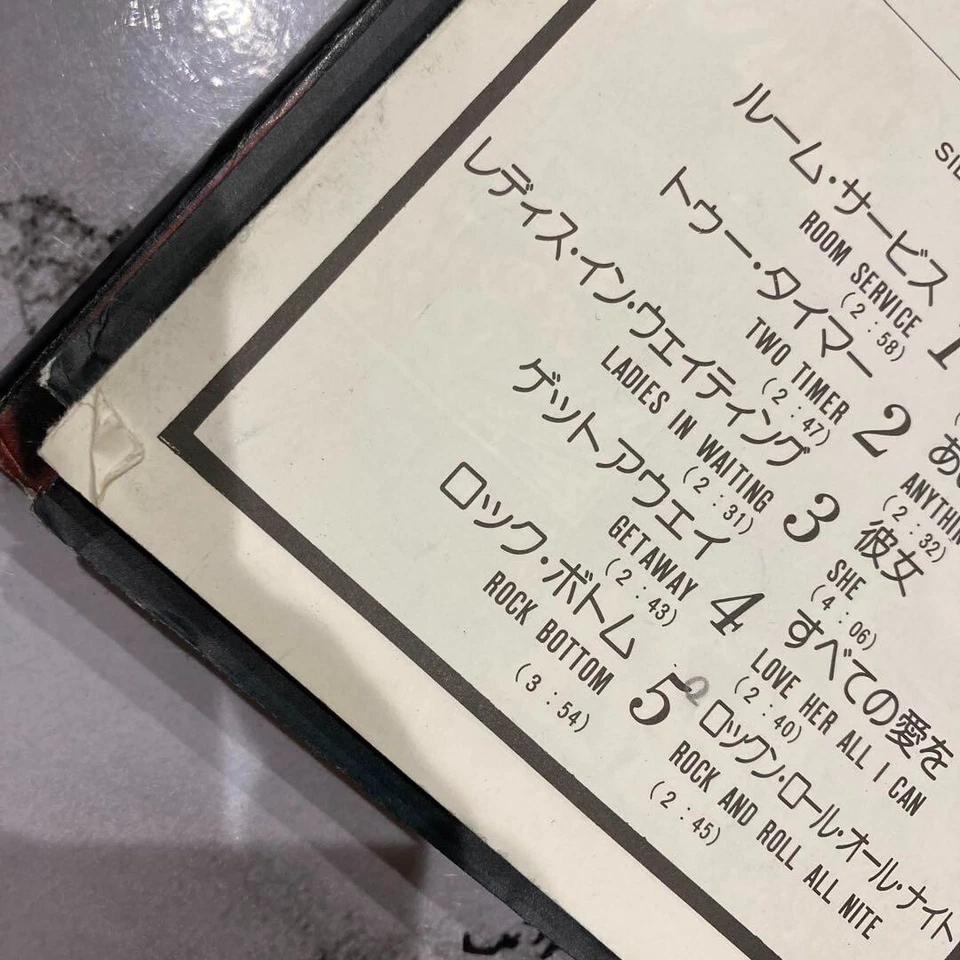 SI
ルーム・サービス
ROOM SERVICE
(2:58)
1
トゥー・タイマー
TWO TIMER
(2:47)
2
レディス・イン・ウェイティング
LADIES IN WAITING
(2:31)
3
ゲット アウェイ
GETAWAY
(2:43)
4
ロック・ボトム
ROCK BOTTOM
(3:54)
5
あ
ANYTHIN
(2:32)
彼女
SHE
(4:06)
すべての愛を
LOVE HER ALL I CAN
(2:40)
ロックン・ロール・オール・ナイト
ROCK AND ROLL ALL NITE
(2:45)